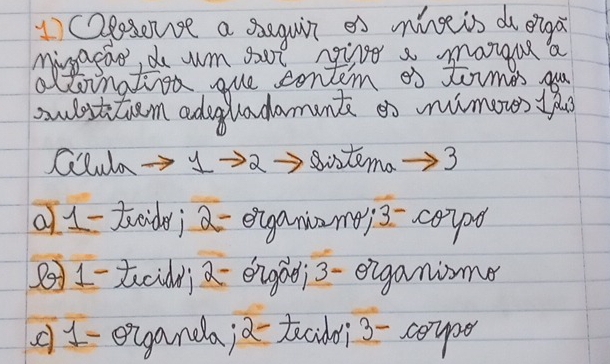 1) Observe a seguir os níveis de orga
nização, de um ser vivo e marque a
alternativa que contém os termos que
substituem adequadamente os números 1,2e3
Célula → 1 → 2 → Sistema → 3
a) 1 - tecido; 2 - organismo; 3 - corpo
b) 1 - tecido; 2 - órgão; 3 - organismo
c) 1 - organela; 2 - tecido; 3 - corpo